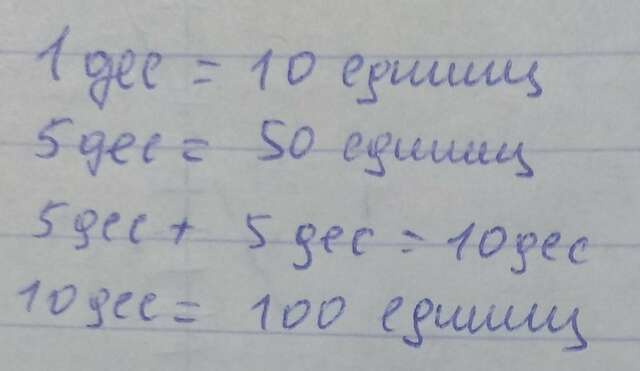 1 дес = 10 единиц
5 дес = 50 единиц
5 дес + 5 дес = 10 дес
10 дес = 100 единиц